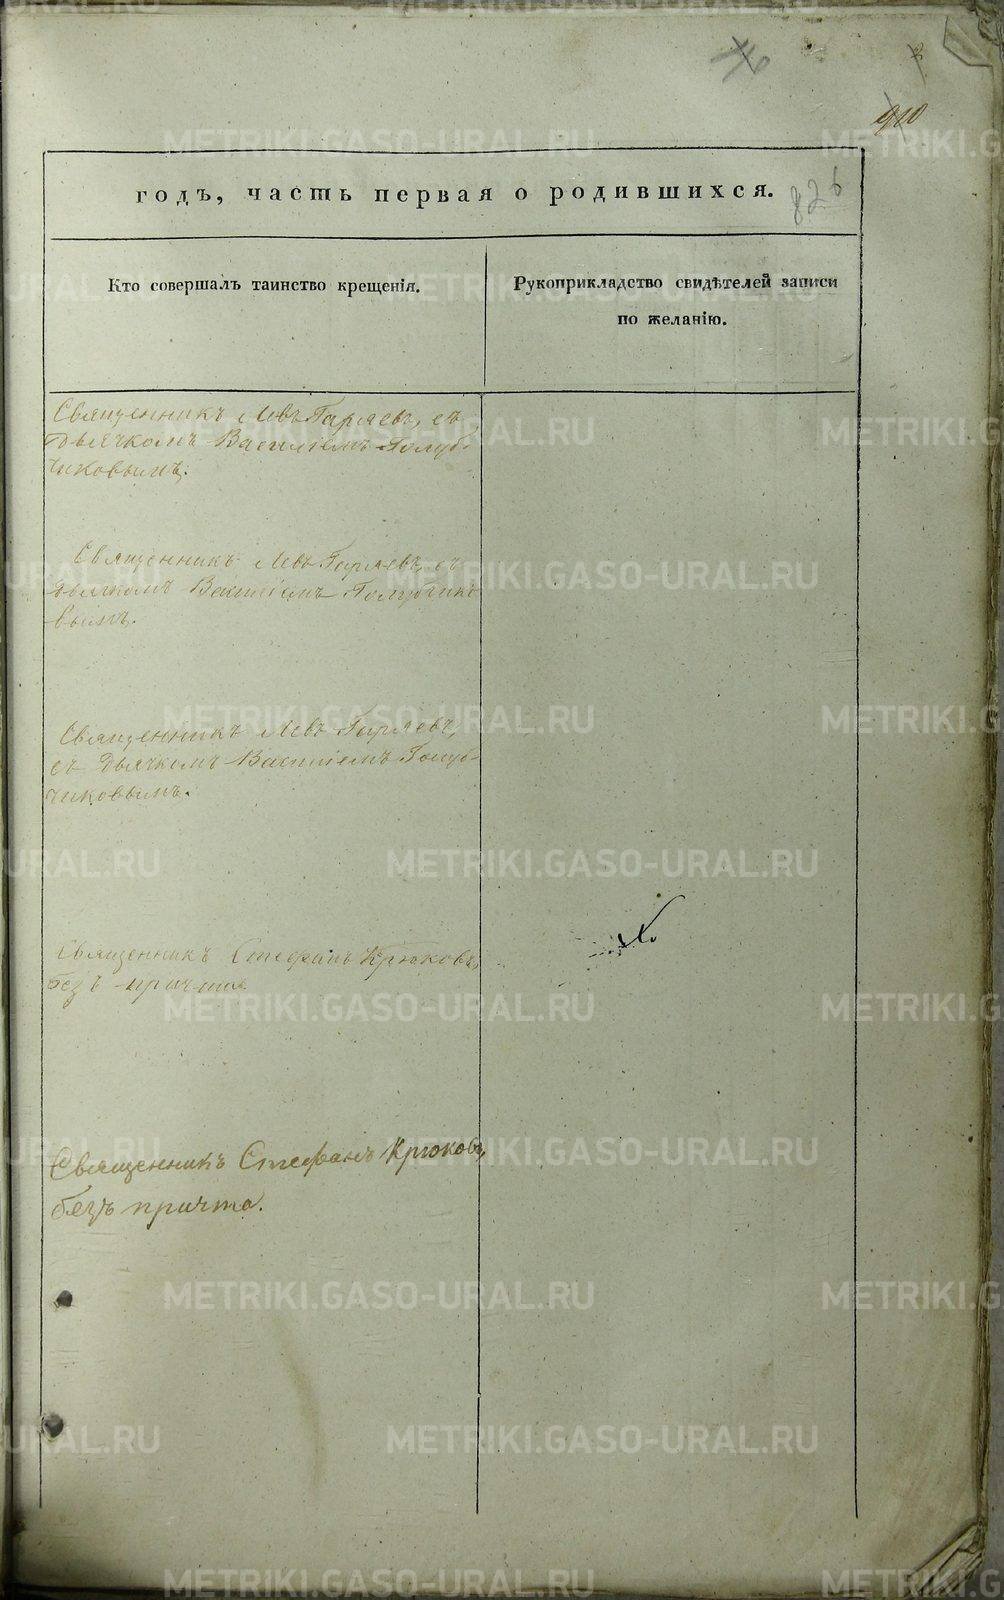 910
годъ, часть первая о родившихся.
826
Кто совершалъ таинство крещенія.
Рукоприкладство свидѣтелей записи
по желанію.
Священникъ Левъ Гаряевъ, съ
дьячкомъ Василіемъ Голуб-
чиковымъ.
Священникъ Левъ Гаряевъ, съ
дьячкомъ Василіемъ Голубчико
вымъ.
Священникъ Левъ Гаряевъ,
съ дьячкомъ Василіемъ Голуб-
чиковымъ.
Священникъ Стефанъ Крюковъ,
безъ причта
Священникъ Стефанъ Крюковъ,
безъ причта.
METRIKI.GASO-URAL.RU